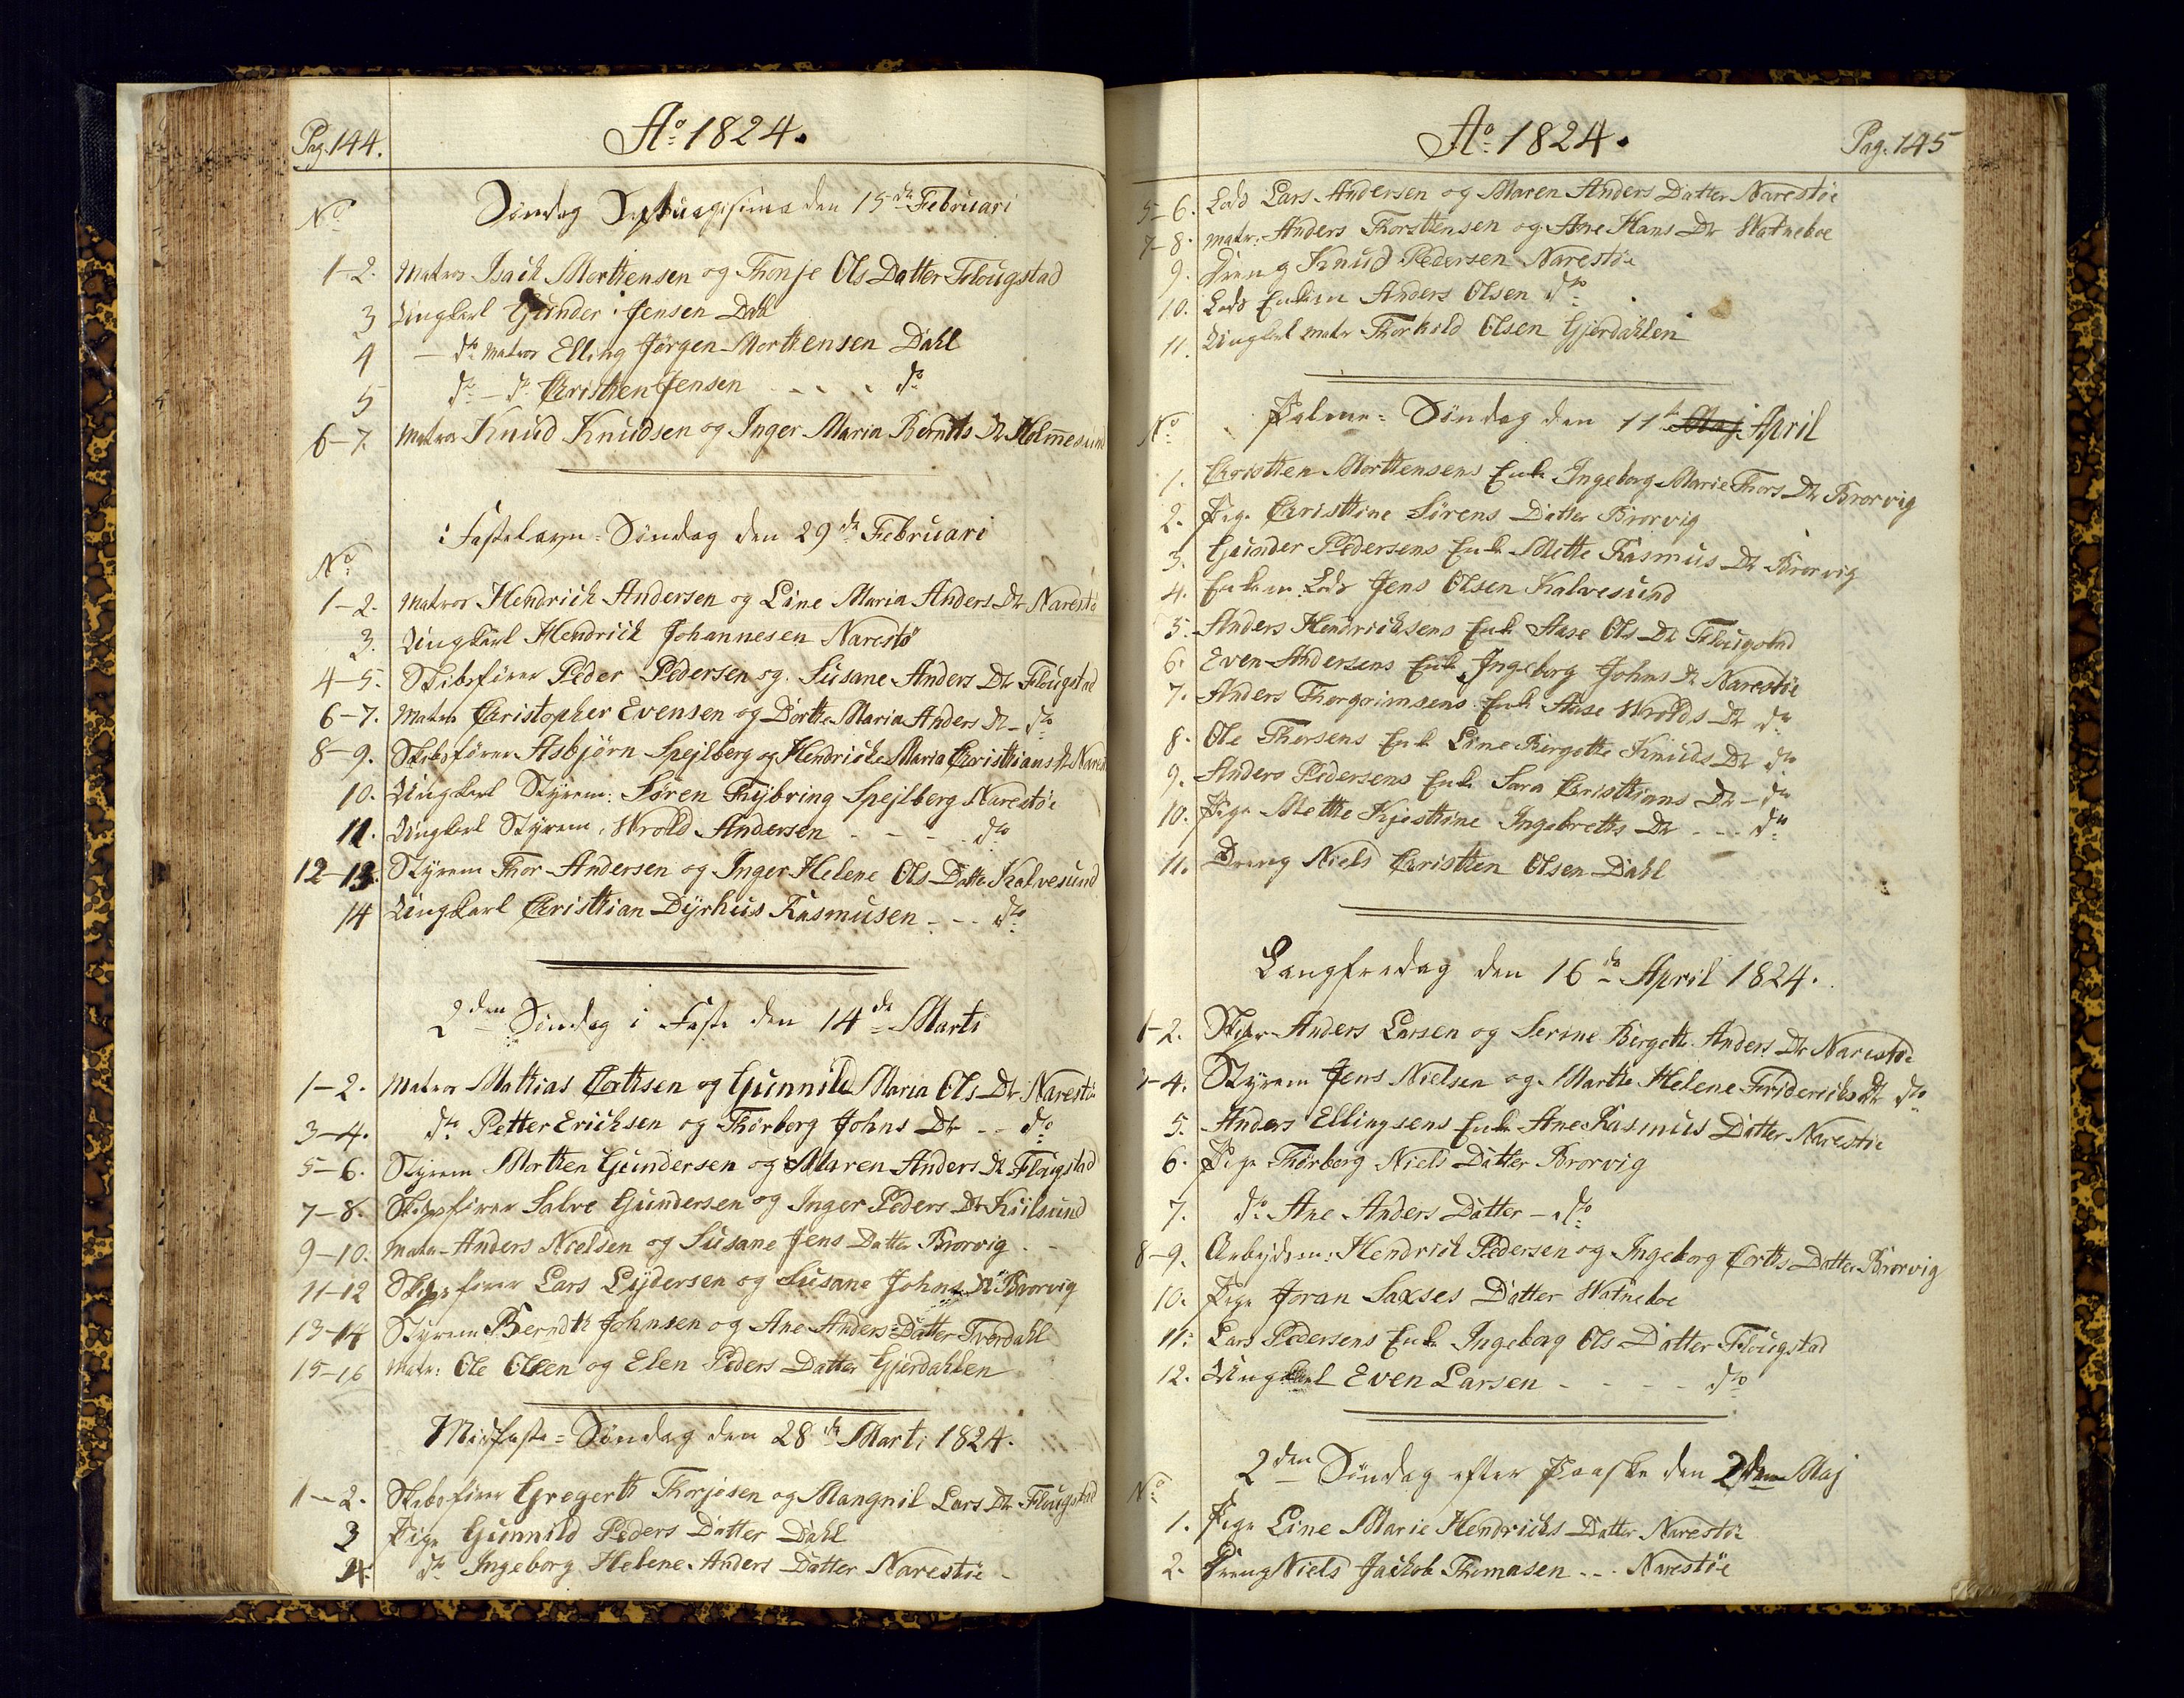 Pag. 144.
Ao 1824.
No
Søndag Septuagesima den 15de Februari
1-2. Matros Isach Morthensen og Thonje Ols Datter Flougstad
3 Ungkarl Gunder Jensen Dahl
4 — do Matros Elling Jørgen Morthensen Dahl
5 do — do Christen Jensen - - - do
6-7. Matros Knud Knudsen og Inger Maria Berndts Dr Holmesund
Fastelavn-Søndag den 29de Februari
No
1-2. Matros Hendrich Andersen og Line Maria Anders Dr Narestø
3. Ungkarl Hendrich Johannesen Narestø
4-5. Skibsfører Peder Pedersen og Susane Anders Dr Flougstad
6-7. Matros Christopher Evensen og Dorthe Maria Anders Dr - do
8-9. Skibsfører Asbjørn Spejlberg og Hendriche Maria Christians Dr Narestø
10. Ungkarl Styrem: Søren Thybring Spejlberg Narestøe
11. Ungkarl Styrem: Wrold Andersen - - - do
12-13. Styrem Thor Andersen og Inger Helene Ols Datter Kalvesund
14 Ungkarl Christian Dyrhuus Rasmusen - - do
2den Søndag i Faste den 14de Marti
1-2. Matros Mathias Corthsen og Gunnild Maria Ols Dr Narestøe
3-4. do Petter Erichsen og Thorborg Johns Dr - - do
5-6. Styrem Morthen Gundersen og Maren Anders Dr Flougstad
7-8. Skibsfører Salve Gundersen og Inger Peders Dr Kiilsund
9-10. Matr. Anders Nielsen og Susane Jens Datter Brorvig
11-12 Skibsfører Lars Lydersen og Susane Johns Dr Brorvig
13-14 Styrem Berndt Johnsen og Ane Anders Datter Tverdahl
15-16 Matr: Ole Olsen og Elen Peders Datter Gjerdahlen
Midfaste-Søndag den 28de Marti 1824.
1-2. Skibsfører Gregert Thorjesen og Mangnil Lars Dr Flougstad
3 Pige Gunnild Peders Datter Dahl
4. do Ingeborg Helene Anders Datter Narestøe
Ao 1824.
Pag. 145
5-6. Lods Lars Andersen og Maren Anders Datter Narestøe
7-8. Matr. Anders Thorsthensen og Ane Hans Dr Watneboe
9. Dreng Knud Pedersen Narestøe
10. Lods Enkem Anders Olsen do
11. Ungkarl Matr Thorkild Olsen Gjerdahlen
No
Palme-Søndag den 11te Maj April
1. Christen Morthensens Enke Ingeborg Marie Thors Dr Brorvig
2. Pige Christine Sørens Datter Brorvig
3. Gunder Pedersens Enke Mette Rasmus Dr Brorvig
4. Enkem Lods Jens Olsen Kalvesund
5. Anders Hendrichsens Enke Aase Ols Dr Flougstad
6. Even Andersens Enke Ingeborg Johns Dr Narestøe
7. Anders Thorgrimsens Enke Aase Wrolds Dr do
8. Ole Thorsens Enke Line Birgette Knuds Dr do
9. Anders Pedersens Enke Sara Christians Dr - do
10. Pige Mette Kjestine Ingebretts Dr - - - do
11. Dreng Niels Christen Olsen Dahl
Langfredag den 16de April 1824.
1-2. Skipr Anders Larsen og Serine Birgethe Anders Dr Narestøe
3-4. Styrem Jens Nielsen og Marthe Helene Friderichs Dr do
5. Anders Ellingsens Enke Ane Rasmus Datter Narestøe
6. Pige Thorborg Niels Datter Brorvig
7. do Ane Anders Datter - do
8-9. Arbejdsm: Hendrich Pedersen og Ingeborg Corths Datter Brorvig
10. Pige Joran Saxses Datter Watneboe
11. Lars Pedersens Enke Ingeborg Ols Datter Flougstad
12. Ungkarl Even Larsen - - - - do
No
2den Søndag efter Paaske den 2den Maj
1. Pige Line Marie Hendrichs Datter Narestøe
2. Dreng Niels Jackob Thomasen - - - Narestøe